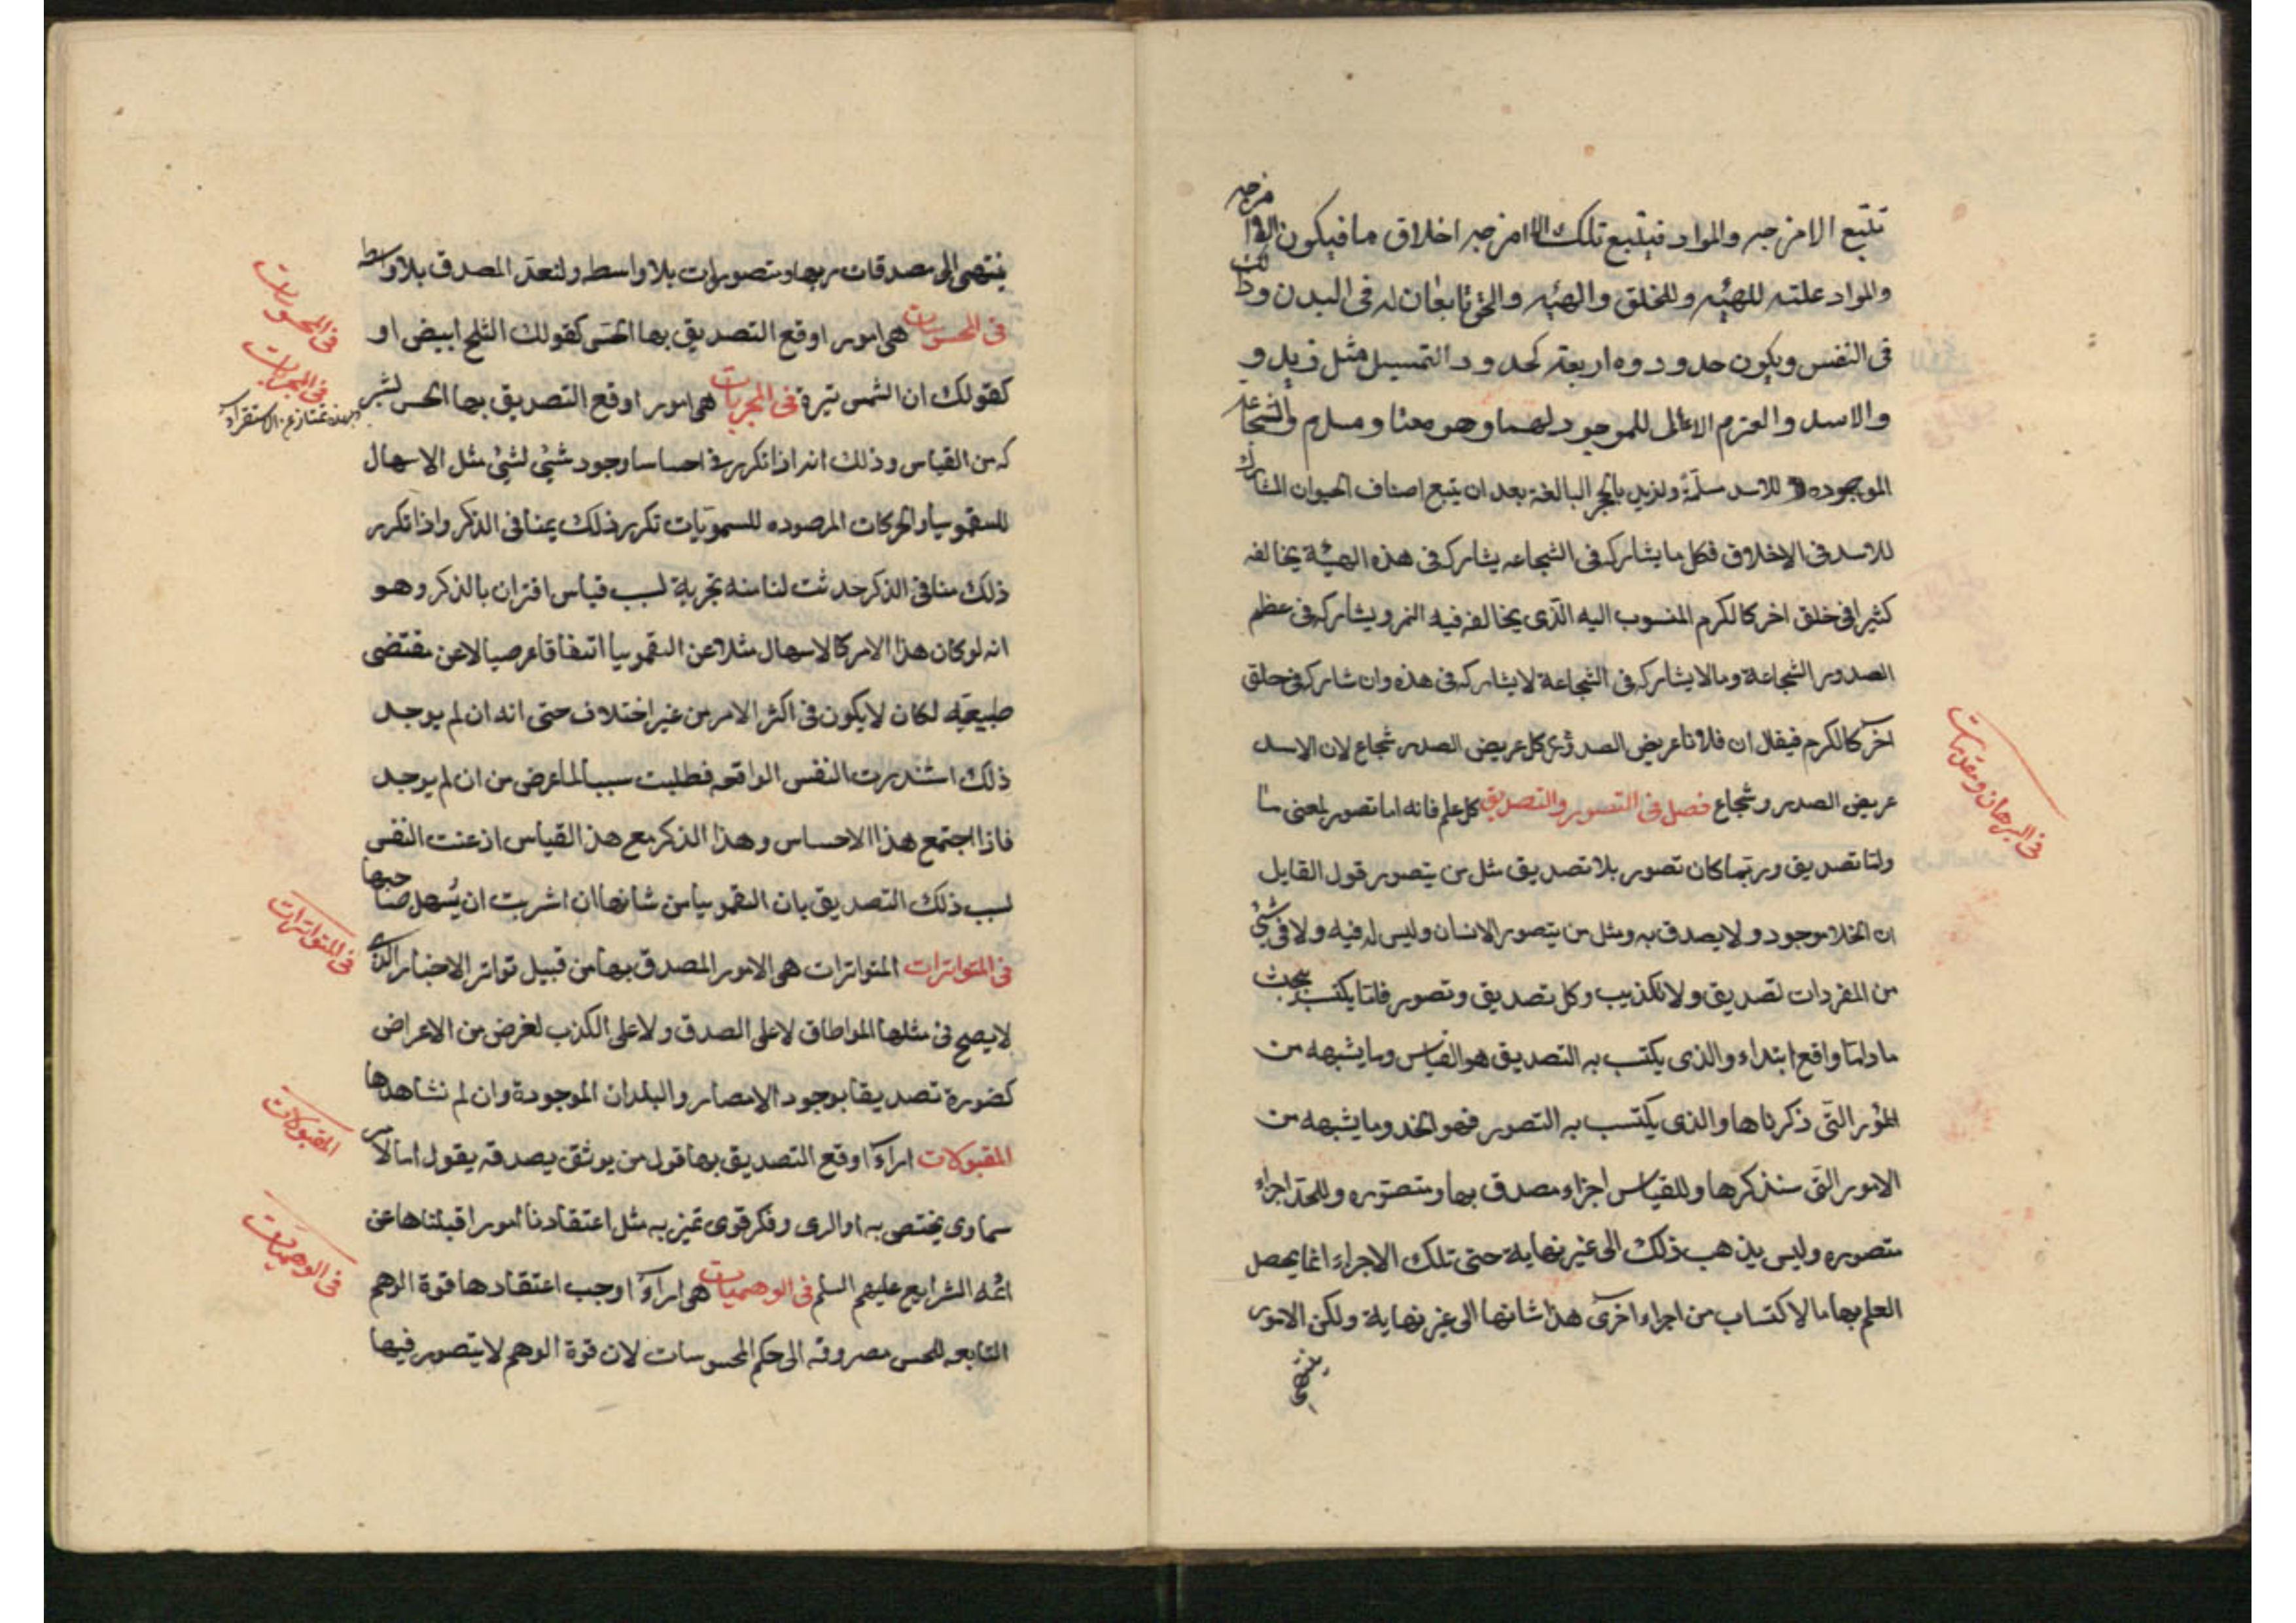 تتبع الامزجه والمواد فيتبع تلك الامزجه اخلاق ما فيكون الامزجه
والمواد علته للهيئه وللخلق والهيئه والخلق تابعان له فى البدن وذلك
فى النفس ويكون حدوده اربعة كحدود التمسيل مثل زيد و
والاسد والعزم الاعالى للموجود لهما وهو معنا ومسلم والشجاعه
الموجوده للاسد سلمة ولزيد بالحجر البالغة بعد ان يتبع اصناف الحيوان المشارك
للاسد فى الاخلاق فكل ما يشاركه فى الشجاعه يشاركه فى هذه الهيئة يخالفه
كثيرا فى خلق اخر كالكرم المنسوب اليه الذى يخالفه فيه النمر ويشاركه فى عظم
الصدور الشجاعة ومالا يشاركه فى الشجاعة لا يشاركه فى هذه وان شاركه فى خلق
آخر كالكرم فيقال ان فلانا عريض الصدر وكل عريض الصدر شجاع لان الاسد
عريض الصدر وشجاع فصل فى التصور والتصديق كل علم فانه اما تصور لمعنى ما
واما تصديق وربما كان تصور بلا تصديق مثل من يتصور قول القايل
ان الخلا موجود ولا يصدق به ومثل من يتصور الانسان وليس له فيه ولا فى شئ
من المفردات تصديق ولا تكذيب وكل تصديق وتصور فاما يكتسب ببحث
ما واما واقع ابتداء والذى يكتسب به التصديق هو القياس وما يشبهه من
الامور التى ذكرناها والذى يكتسب به التصور فهو الحد وما يشبهه من
الامور التى سنذكرها وللقياس اجزاء مصدق بها ومتصوره وللحد اجزاء
متصوره وليس يذهب ذلك الى غير نهاية حتى تلك الاجزاء انما يحصل
العلم بها مالاكتساب من اجزاء اخرى هذا شانها الى غير نهاية ولكن الامور
ينتهى
فى البرهان ومقدمات
ينتهى الى مصدقات بها ومتصورات بلا واسطه ولنعد المصدق بلا واسطه
فى المحسوسات هى امور اوقع التصديق بها الحس كقولك الثلج ابيض او
كقولك ان الشمس نيرة فى المجربات هى امور اوقع التصديق بها الحس بشر
كه من القياس وذلك انه اذا تكرر فى احساسا وجود شئ لشئ مثل الاسهال
للسقمونيا والحركات المرصوده للسمويات تكرر ذلك يمنا فى الذكر واذا تكرر
ذلك منا فى الذكر حدثت لنا منه تجربة لسبب قياس اقتران بالذكر وهو
انه لو كان هذا الامر كالاسهال مثلا عن السقمونيا اتفاقا عرضيا لا عن مقتضى
طبيعته لكان لا يكون فى اكثر الامر من غير اختلاف حتى انه ان لم يوجد
ذلك استندرت النفس الواقعه فطلبت سببا لما عرض من ان لم يوجد
فاذا اجتمع هذا الاحساس وهذا الذكر مع هذ القياس اذعنت النفس
لسبب ذلك التصديق بان السقمونيا من شانها ان اشربت ان يسهل صاحبها
فى المتواترات المتواترات هى الامور المصدق بها من قبيل تواتر الاخبار الذى
لا يصح فى مثلها المواطاة لا على الصدق ولا على الكذب لغرض من الاعراض
كضورة تصديقا بوجود الامصار والبلدان الموجودة وان لم نشاهدها
المقبولات اراء اوقع التصديق بها قول من يوثق بصدقه يقول اما لامر
سماوى يختص به او لراى وفكر قوى تميز به مثل اعتقادنا امورا قبلناها عن
ائمه الشرايع عليهم السلم فى الوهميات هى اراء اوجب اعتقادها قوة الوهم
التابعه للحس مصروفه الى حكم المحسوسات لان قوة الوهم لا يتصور فيها
فى المحسوسات
فى المجربات
فى المتواترات
المقبولات
فى الوهميات